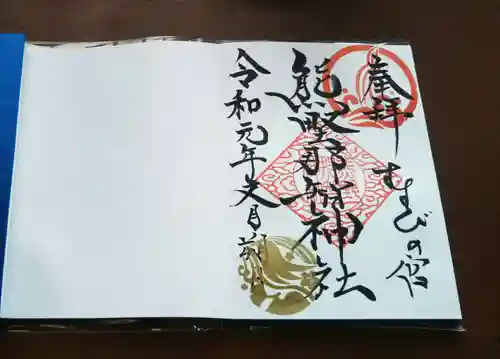 奉拝 むすびの宿
熊野那智神社
令和元年文月